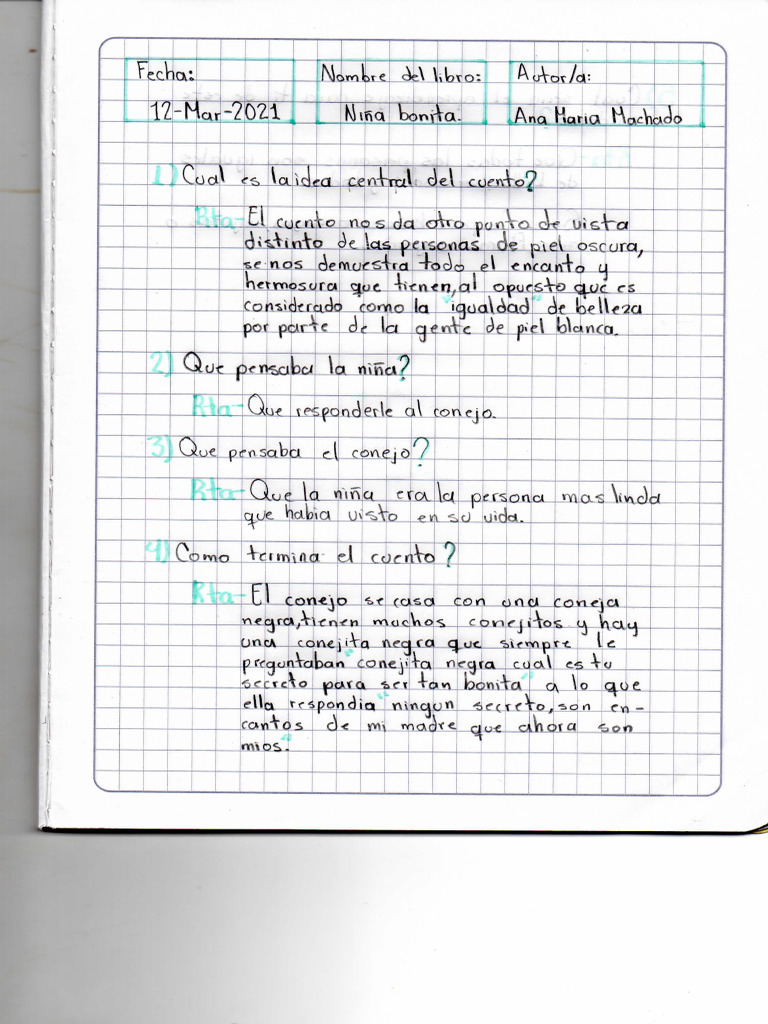 Fecha: Nombre del libro: Autor/a:
12-Mar-2021 Niña bonita. Ana Maria Machado
1) Cual es la idea central del cuento?
Rta- El cuento nos da otro punto de vista
distinto de las personas de piel oscura,
se nos demuestra todo el encanto y
hermosura que tienen, al opuesto que es
considerado como la "igualdad" de belleza
por parte de la gente de piel blanca.
2) Que pensaba la niña?
Rta- Que responderle al conejo.
3) Que pensaba el conejo?
Rta- Que la niña era la persona mas linda
que habia visto en su vida.
4) Como termina el cuento?
Rta- El conejo se casa con una coneja
negra, tienen muchos conejitos y hay
una conejita negra que siempre le
preguntaban "conejita negra cual es tu
secreto para ser tan bonita" a lo que
ella respondia "ningun secreto, son en-
cantos de mi madre que ahora son
mios."